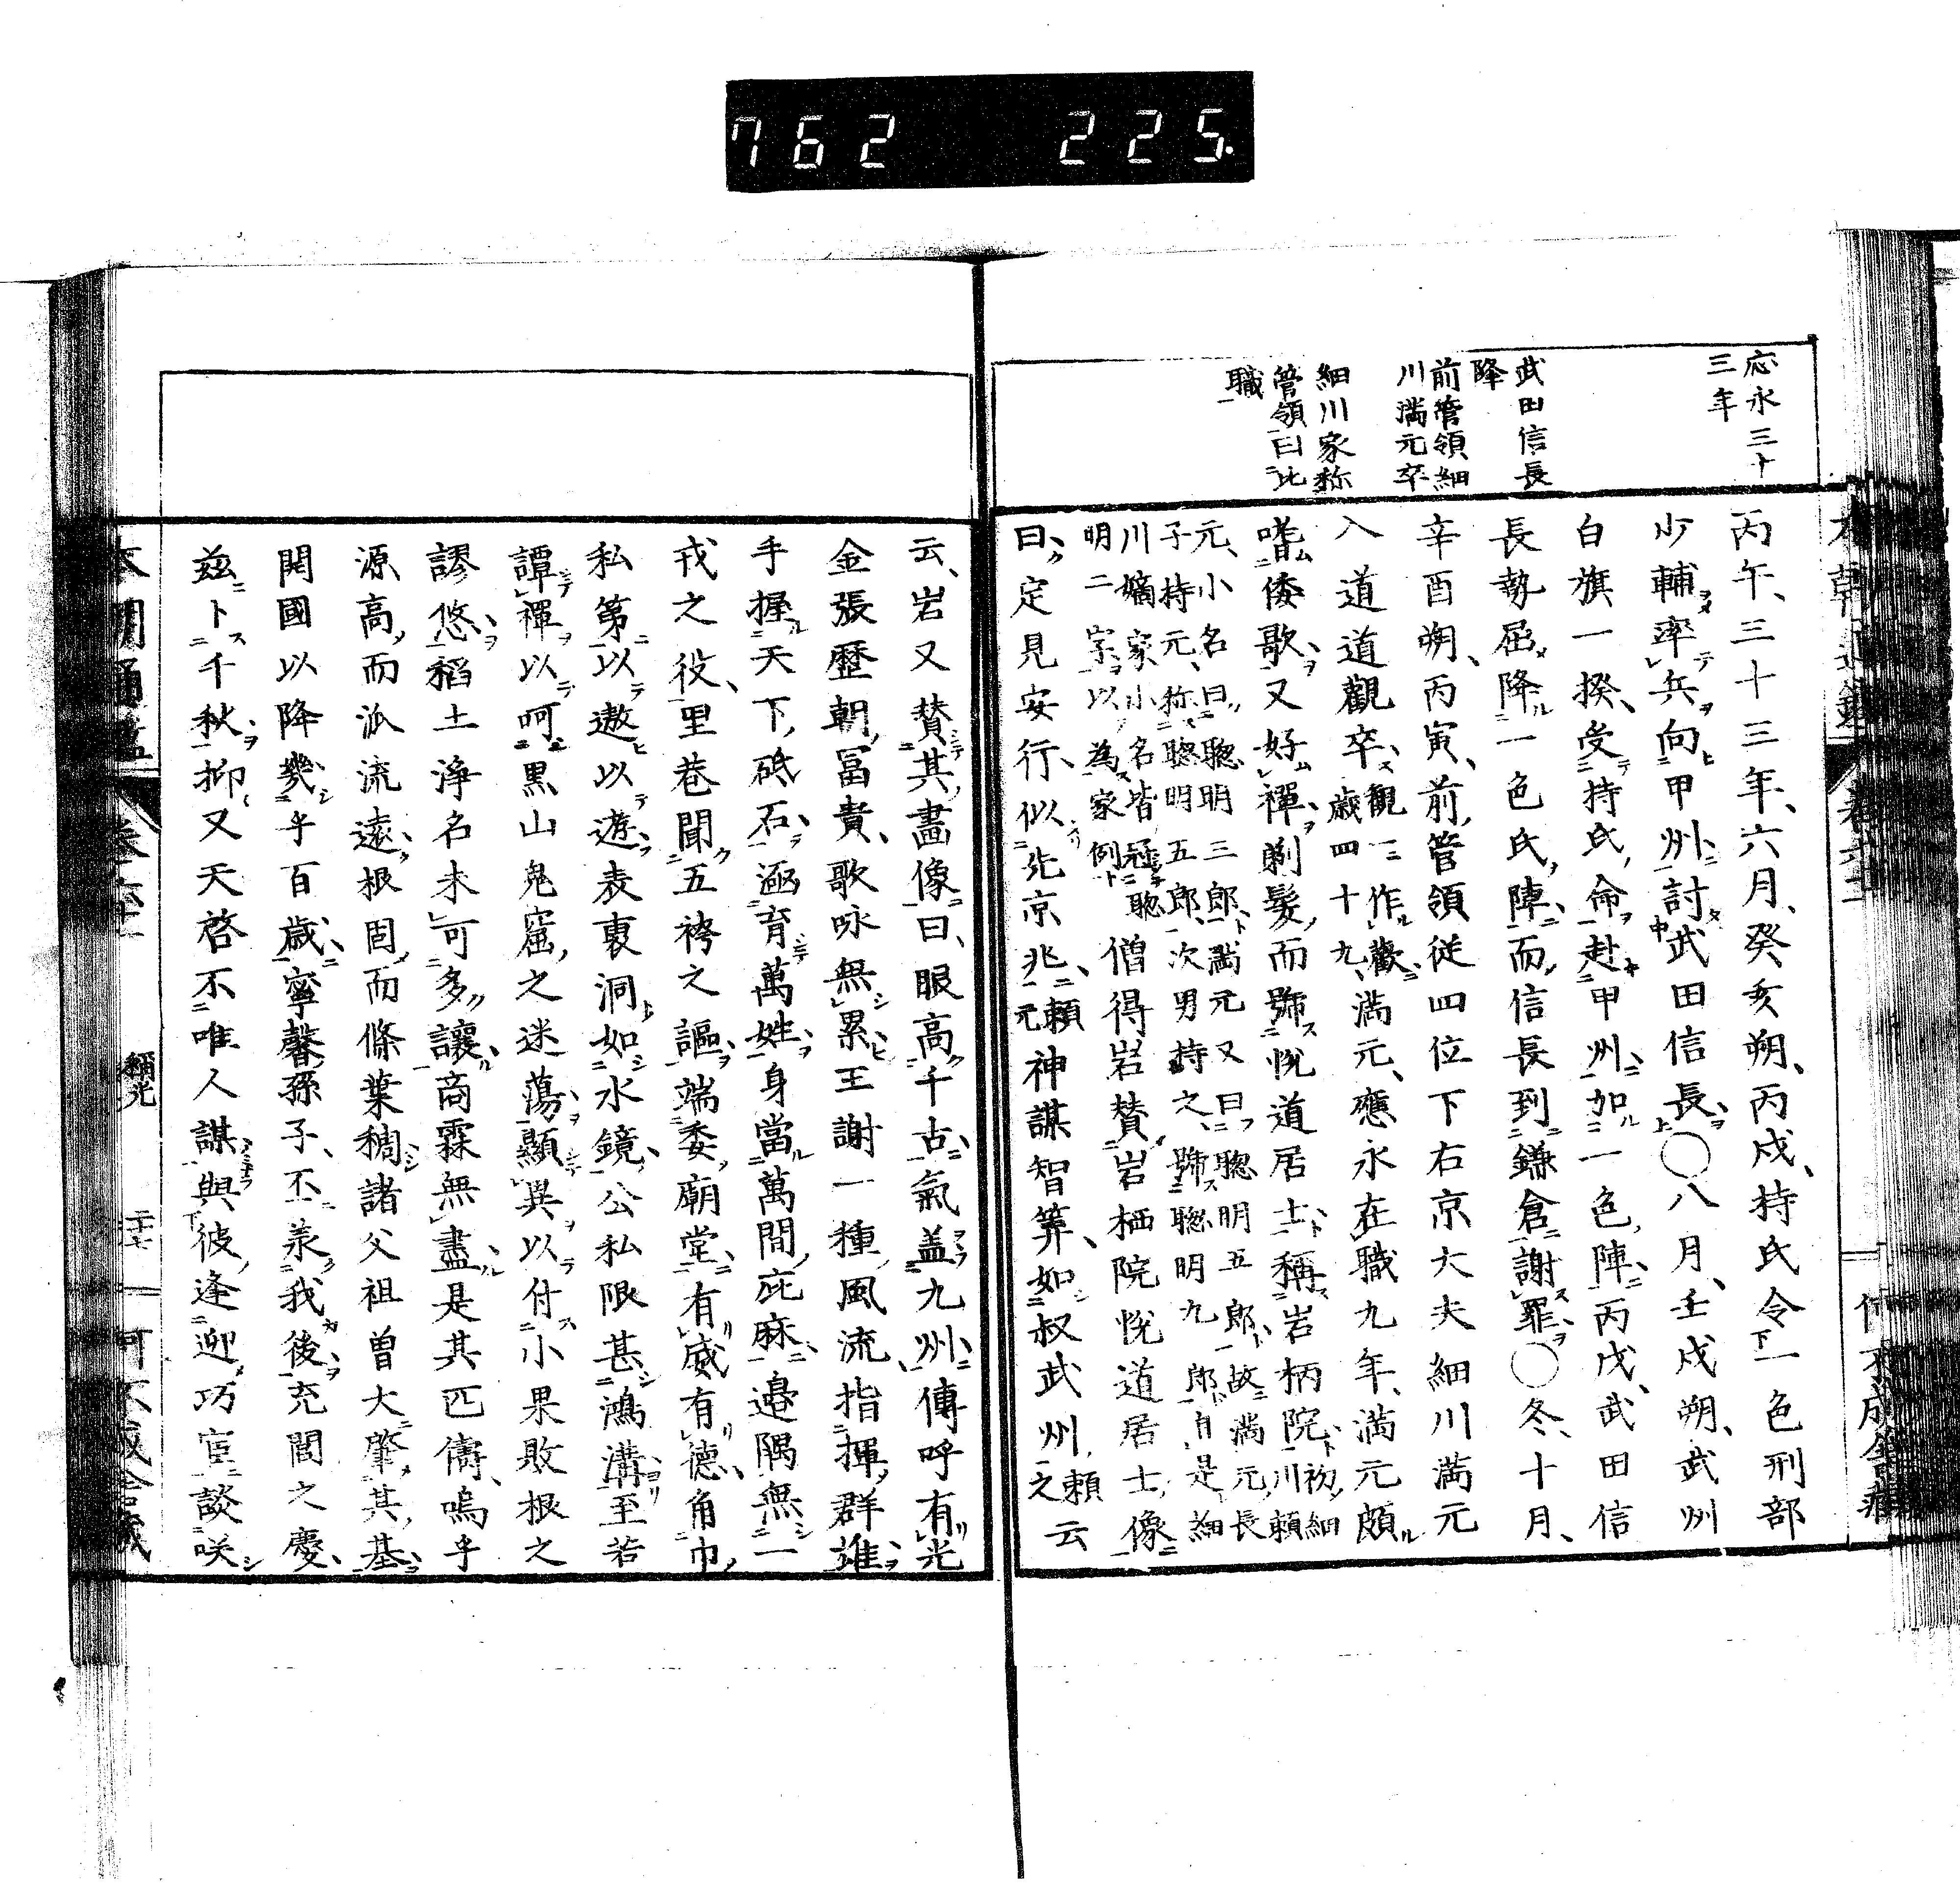 762 225.
応永三十
三年
武田信長
降
前管領細
川満元卒
細川家称
管領曰比
職
丙午三十三年六月癸亥朔丙戌持氏令一色刑部
少輔率兵向甲州討武田信長〇八月壬戌朔武州
白旗一揆受持氏命赴甲州加一色陣丙戌武田信
長勢屈降一色氏陣而信長到鎌倉謝罪〇冬十月
辛酉朔丙寅前管領従四位下右京大夫細川満元
入道道観卒観一作歓歳四十九満元應永在職九年満元頗
嗜倭歌又好禪剃髪而號悦道居士稱岩柄院初細川頼
元小名曰聰明三郎満元又曰聰明五郎故満元長
子持元称聰明五郎次男持之號聰明九郎自是細
川嫡家小名皆冠聰
明二字以為家例僧得岩賛岩栖院悦道居士像
曰定見安行似先京兆頼元神謀智筭如叔武州頼之云
云岩又賛其畫像曰眼高千古氣盖九州傳呼有光
金張歴朝冨貴歌咏無累王謝一種風流指揮群雄
手握天下砥石涵育萬姓身當萬間庇庥邉隅無一
戎之役里巷聞五袴之謳端委廟堂有威有德角巾
私第以遨以遊表裏洞如水鏡公私限甚鴻溝至若
譚禪以呵黒山鬼窟之迷蕩顯異以付小果敗根之
謬悠稻土浄名未可多讓商霖無盡是其匹儔嗚乎
源高而泒流遠根固而條葉稠諸父祖曽大肇其基
開國以降幾乎百歳寧馨孫子不忝我後充閭之慶
茲卜千秋抑又天啓不唯人謀與彼逢迎巧宦談咲
本朝通鑑 卷六十一 稱光 二十七